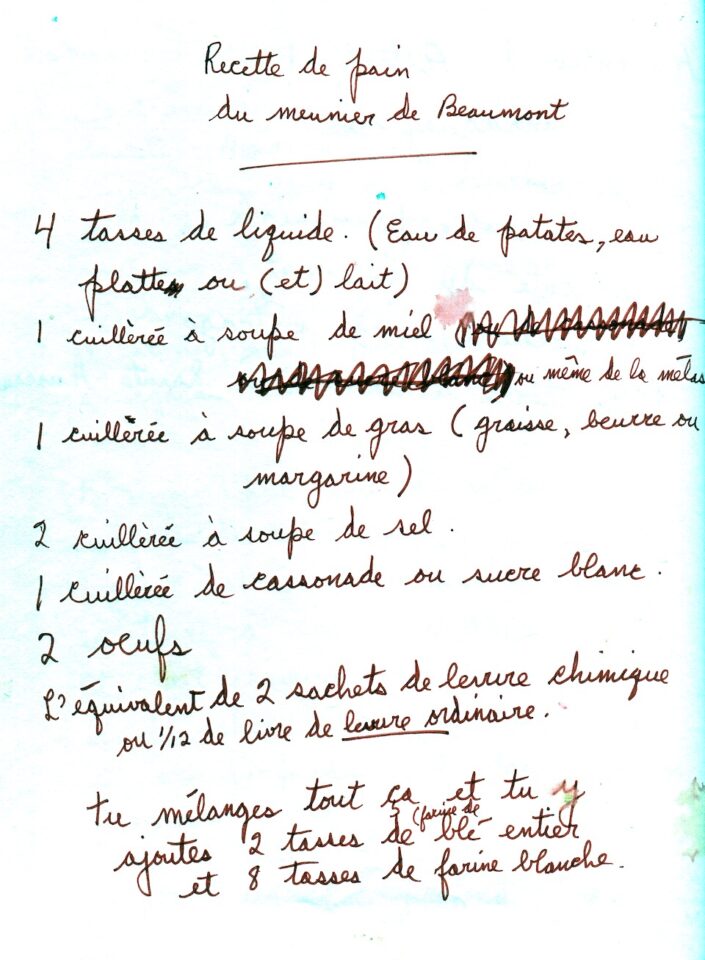 Recette de pain
du meunier de Beaumont
4 tasses de liquide. (Eau de patates, eau
platte ou (et) lait)
1 cuillèrée à soupe de miel
ou même de la mélas
1 cuillèrée à soupe de gras (graisse, beurre ou
margarine)
2 cuillèrée à soupe de sel.
1 cuillèrée de cassonade ou sucre blanc.
2 oeufs
L'équivalent de 2 sachets de levure chimique
ou 1/12 de livre de levure ordinaire.
tu mélanges tout ça et tu y
(farine de
ajoutes 2 tasses de blé entier
et 8 tasses de farine blanche.